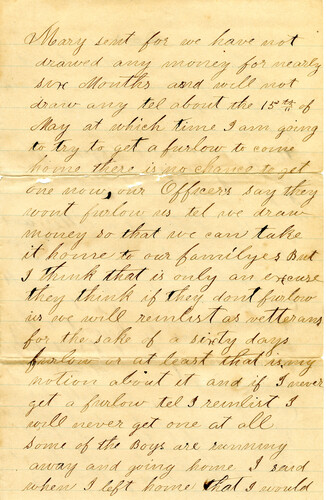 Mary sent for we have not
drawed any money for nearly
six Months and will not
draw any tel about the 15th of
May at which time I am going
to try to get a furlow to come
home there is no chance to get
one now, our Officers say they
wont furlow us tel we draw
money so that we can take
it home to our familyes But
I think that is only an excuse
they think if they dont furlow
us we will reinlist as vetterans
for the sake of a sixty days
furlow or at least that is my
notion about it and if I never
get a furlow tel I reinlist I
will never get one at all
some of the Boys are running
away and going home I said
when I left home that I would